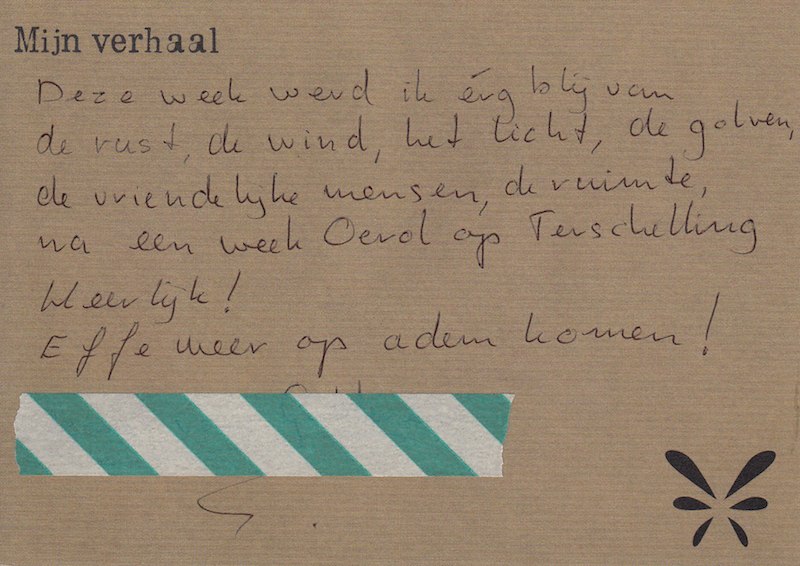 Mijn verhaal
Deze week werd ik érg blij van
de rust, de wind, het licht, de golven,
de vriendelijke mensen, de ruimte,
na een week Oerol op Terschelling
Heerlijk!
Effe weer op adem komen!